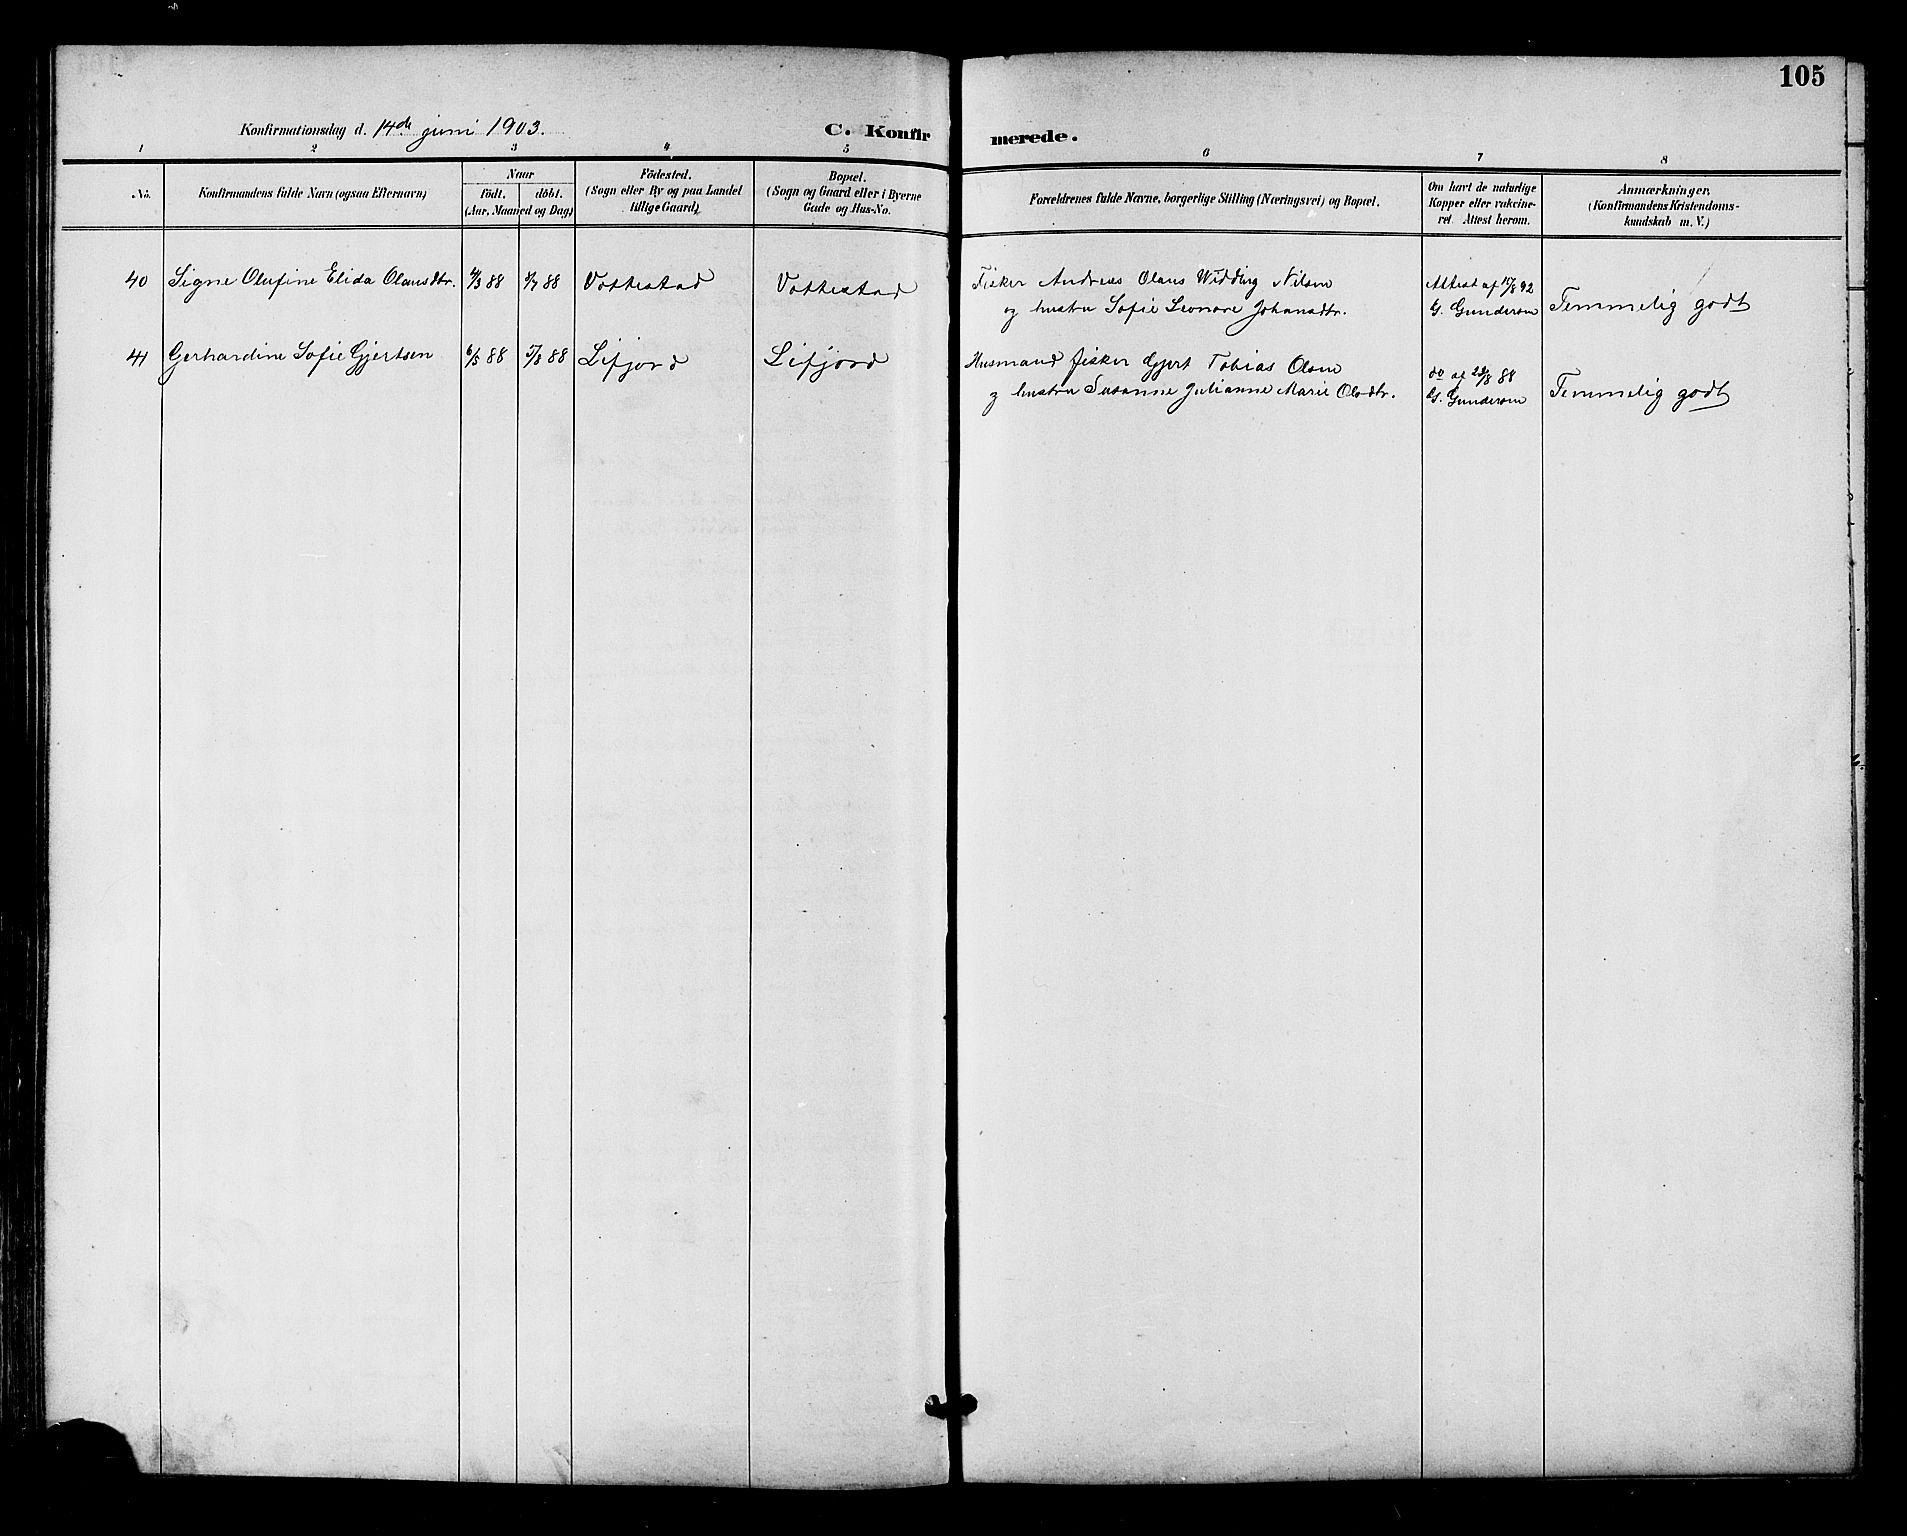 105
Konfirmationsdag d. 14de juni 1903.
C. Konfirmerede.
1 2 3 4 5 6 7 8
No.
Konfirmandens fulde Navn (ogsaa Efternavn)
Naar
født. døbt.
(Aar, Maaned og Dag)
Fødested.
(Sogn eller By og paa Landet
tillige Gaard)
Bopæl.
(Sogn og Gaard eller i Byerne
Gade og Hus-No.
Forældrenes fulde Navne, borgerlige Stilling (Næringsvei) og Bopæl.
Om havt de naturlige
Kopper eller vakcine-
ret. Attest herom.
Anmærkninger,
(Konfirmandens Kristendoms-
kundskab m. V.)
40 Signe Olufine Elida Olausdtr. 4/3 88 1/7 88 Vottestad Vottestad Fisker Andreas Olaus Widding Nilsen Attest af 15/8 92
og hustru Sofie Leonore Johansdtr. G. Gundersen Temmelig godt
41 Gerhardine Sofie Gjertsen 6/5 88 5/8 88 Lifjord Lifjord Husmand fisker Gjert Tobias Olsen do af 23/8 88
og hustru Susanne Julianne Marie Olsdtr. G. Gundersen Temmelig godt